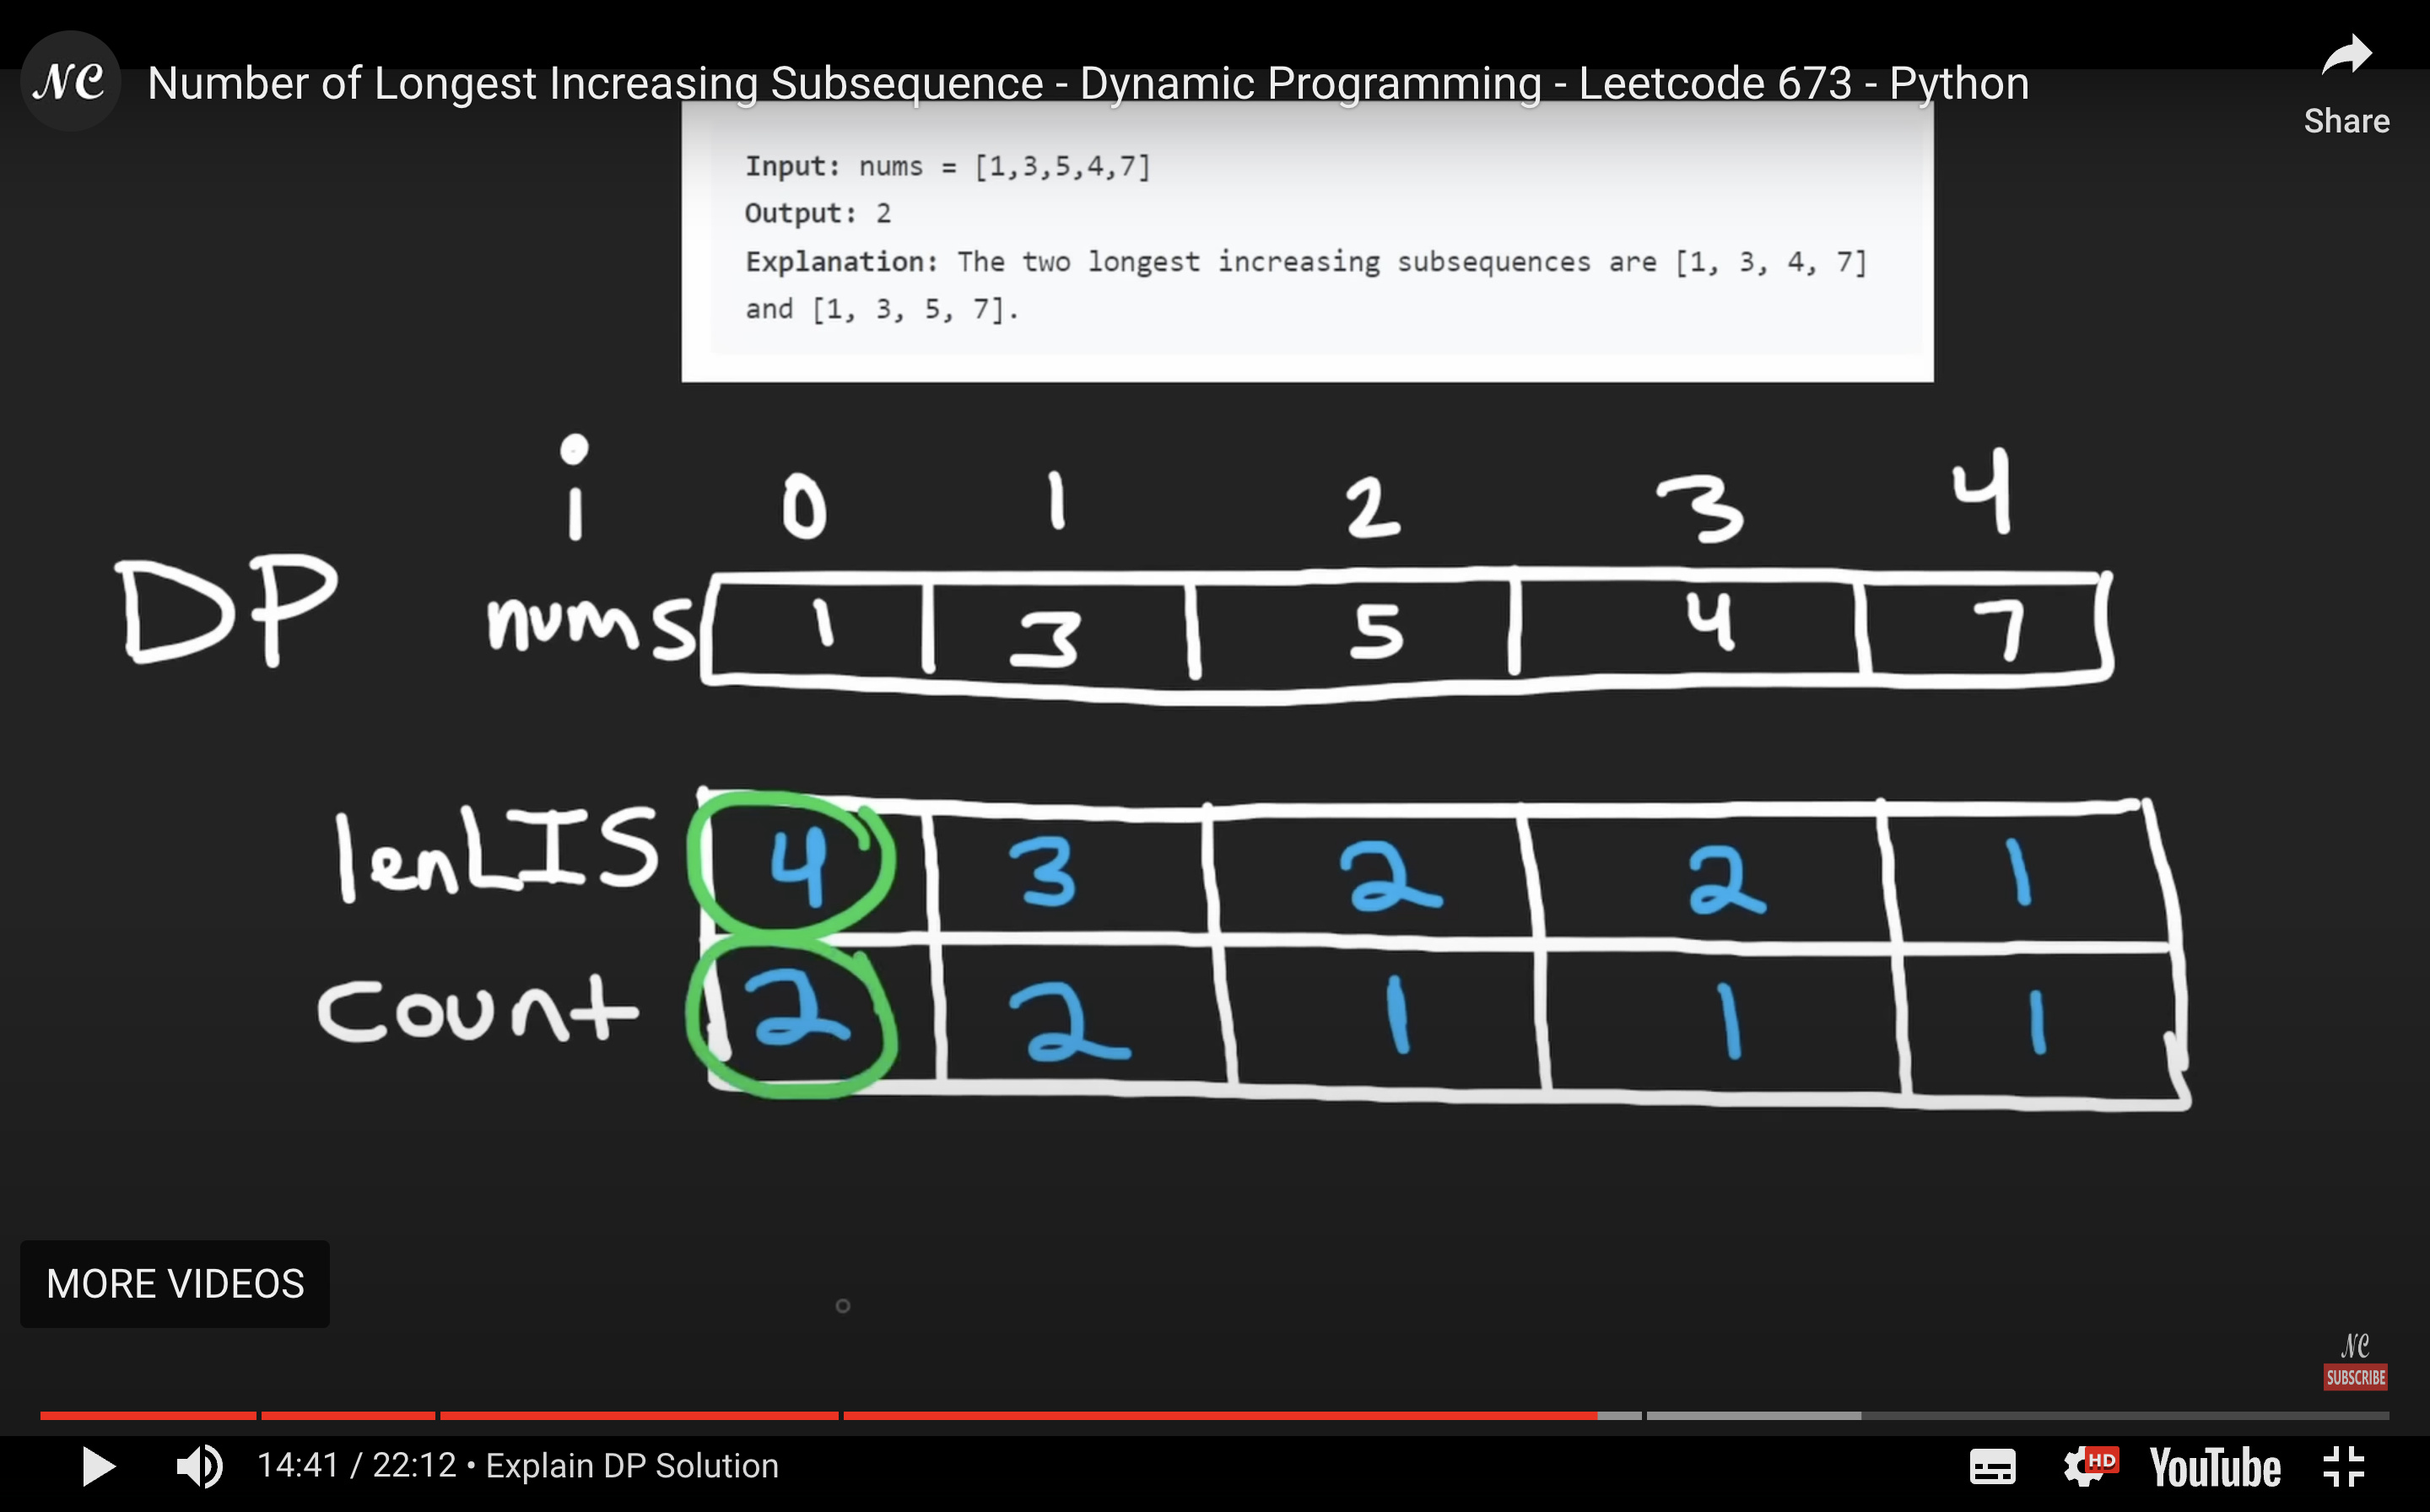 NC Number of Longest Increasing Subsequence - Dynamic Programming - Leetcode 673 - Python
Share
Input: nums = [1,3,5,4,7]
Output: 2
Explanation: The two longest increasing subsequences are [1, 3, 4, 7]
and [1, 3, 5, 7].
i 0 1 2 3 4
DP nums 1 3 5 4 7
lenLIS 4 3 2 2 1
Count 2 2 1 1 1
MORE VIDEOS
NC
SUBSCRIBE
14:41 / 22:12 • Explain DP Solution HD YouTube